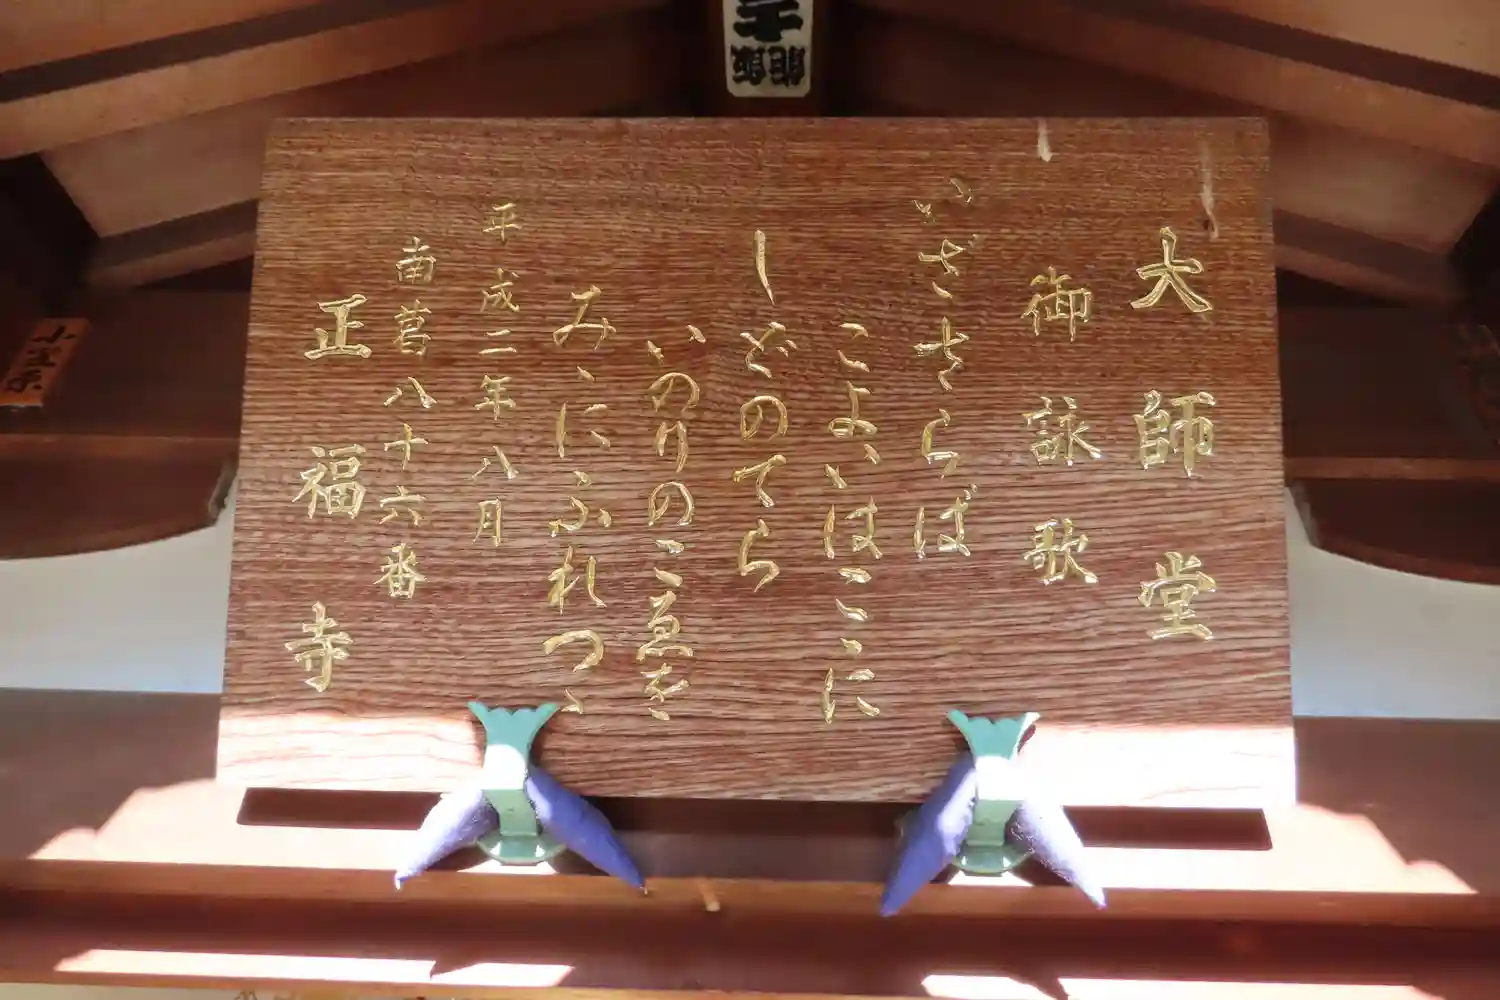 大師堂
御詠歌
いざさらば
こよいはここに
しどのてら
いのりのこゑを
みゝにふれつゝ
平成二年八月
南葛八十六番
正福寺